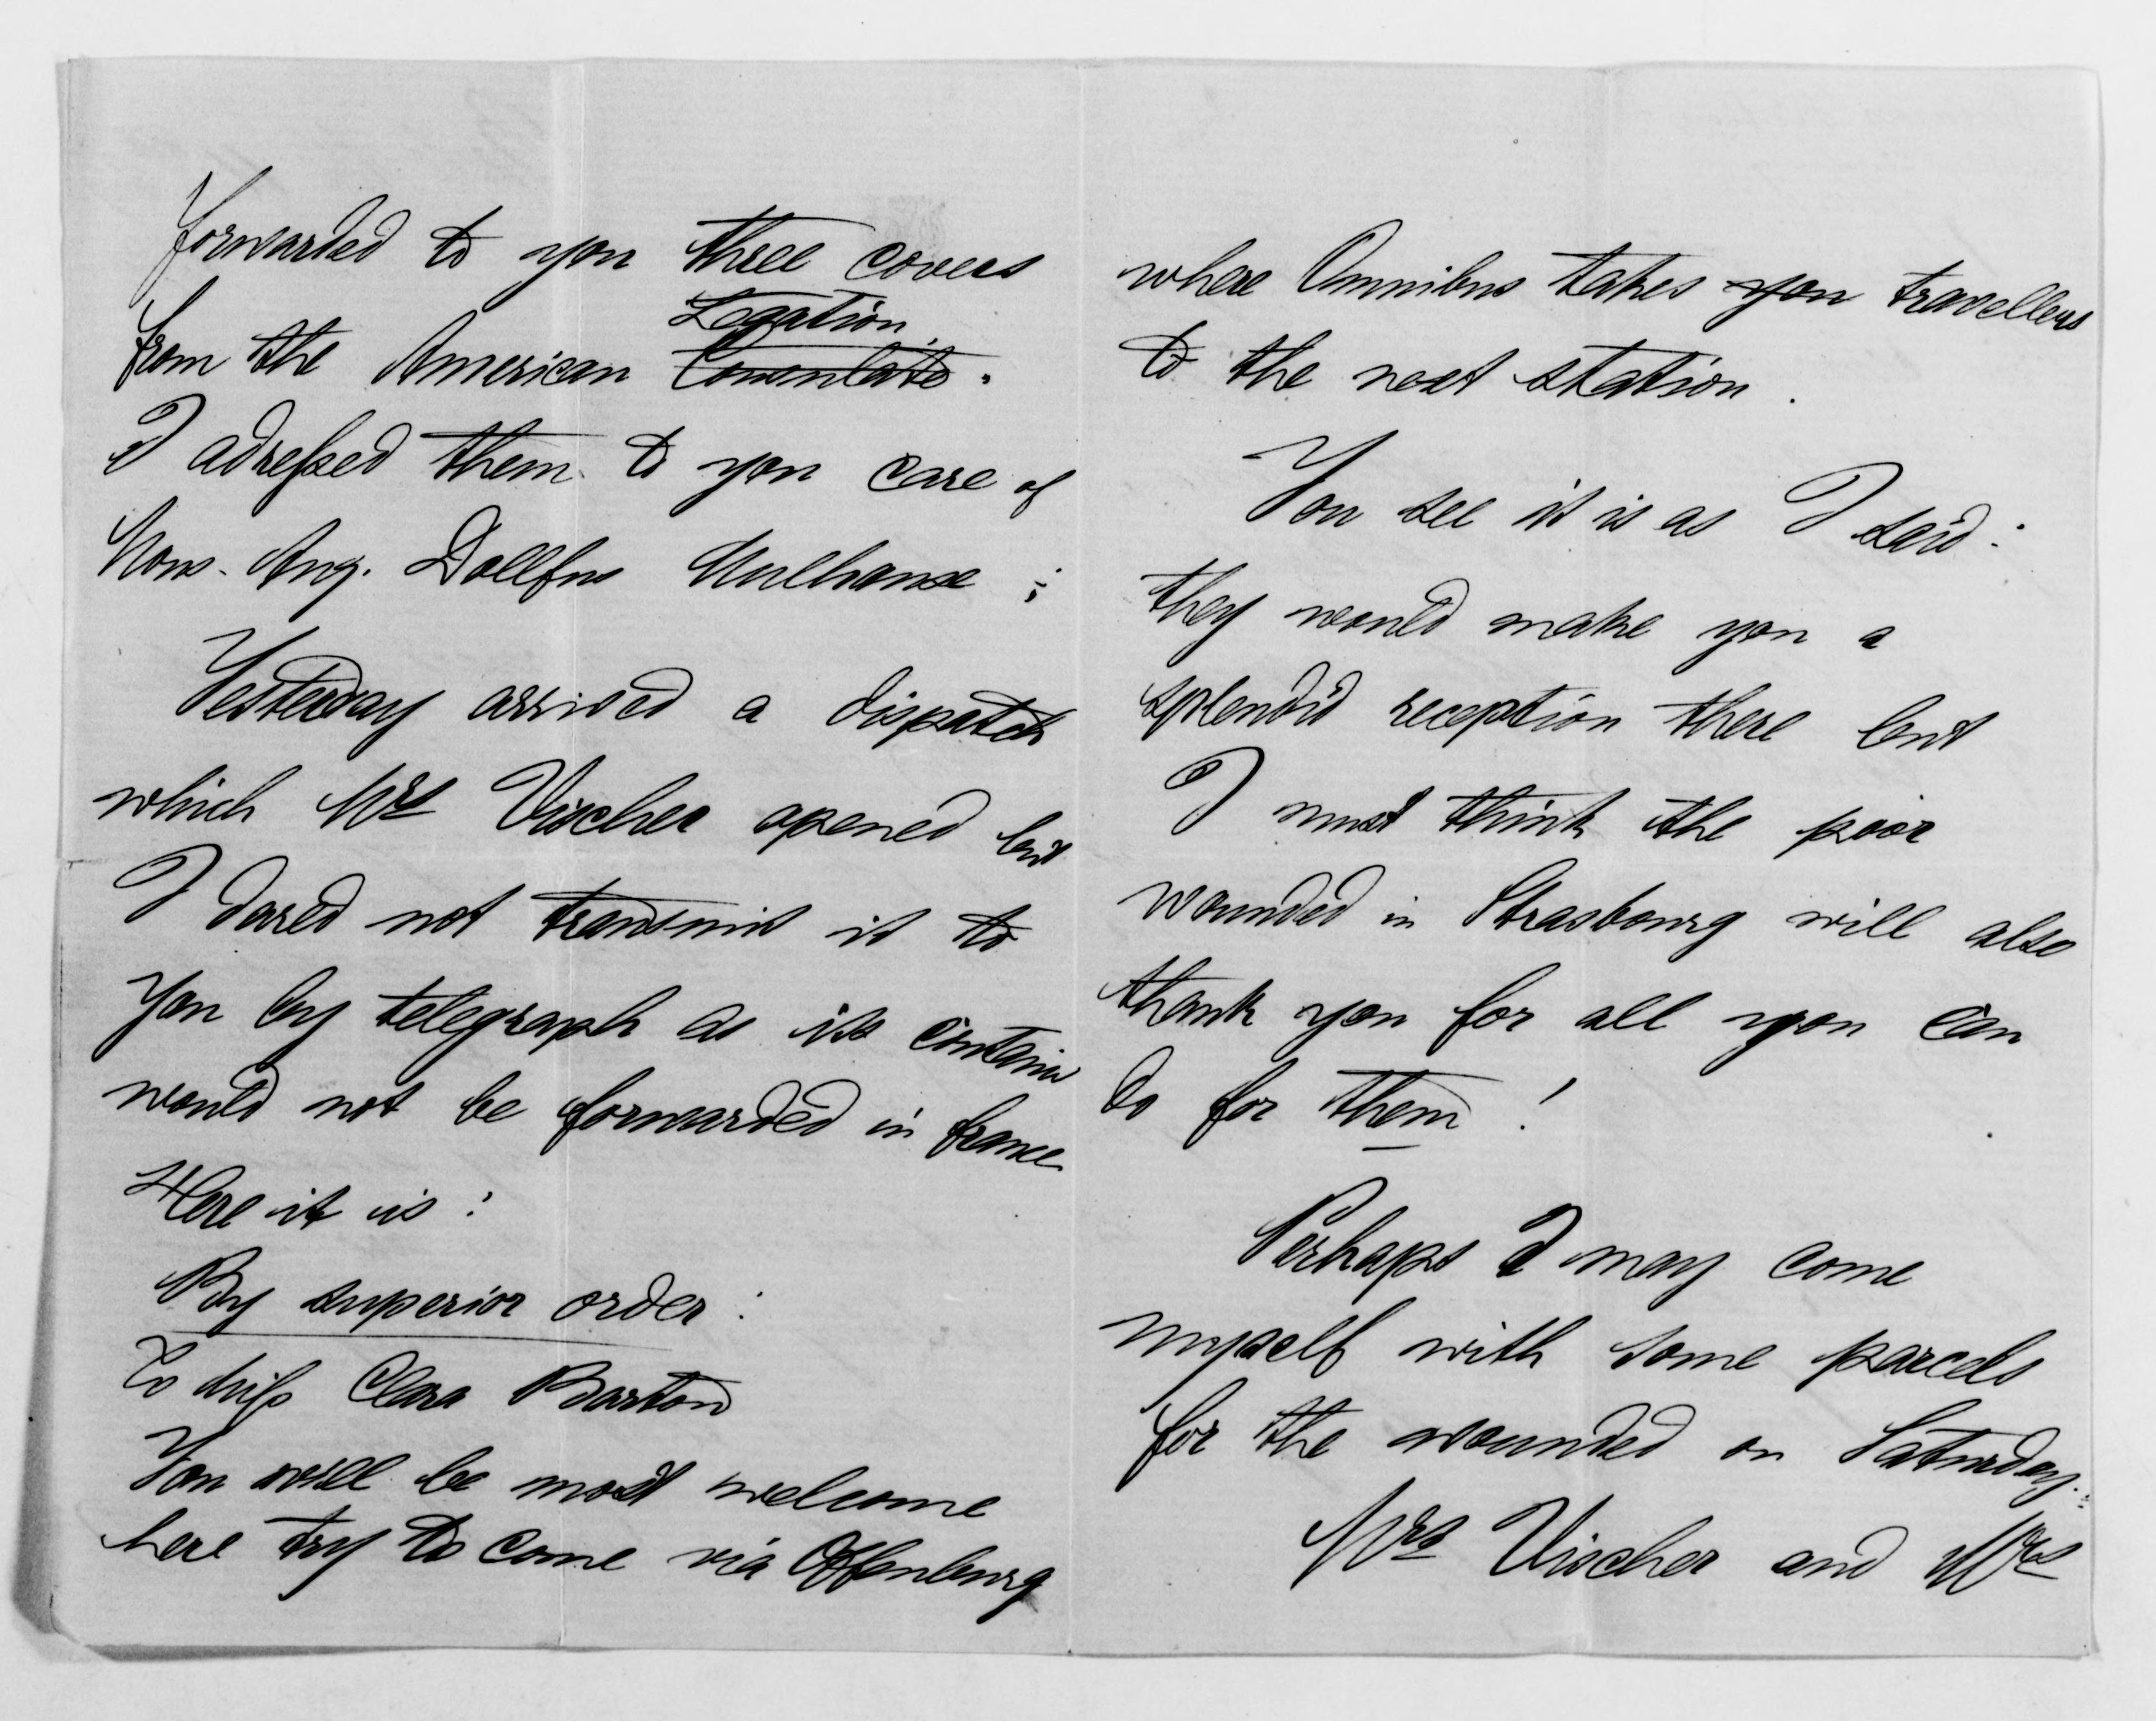 forwarded to you three covers
Legation
from the American Consulate.
I adressed them to you care of
Mons. Aug. Dollfus Mulhouse ;
Yesterday arrived a dispatch
which Mrs Vischer opened but
I dared not transmit it to
you by telegraph as its
would not be forwarded in france
Here it is :
By superior order :
To Miss Clara Barton
You will be most welcome
here try to come via Offenburg
where Omnibus takes you travellers
to the next station.
You see it is as I said :
they would make you a
splendid reception there but
I must think the poor
wounded in Strasbourg will also
thank you for all you can
do for them !
Perhaps I may come
myself with some parcels
for the wounded on Saturday.
Mrs Vischer and Mrs